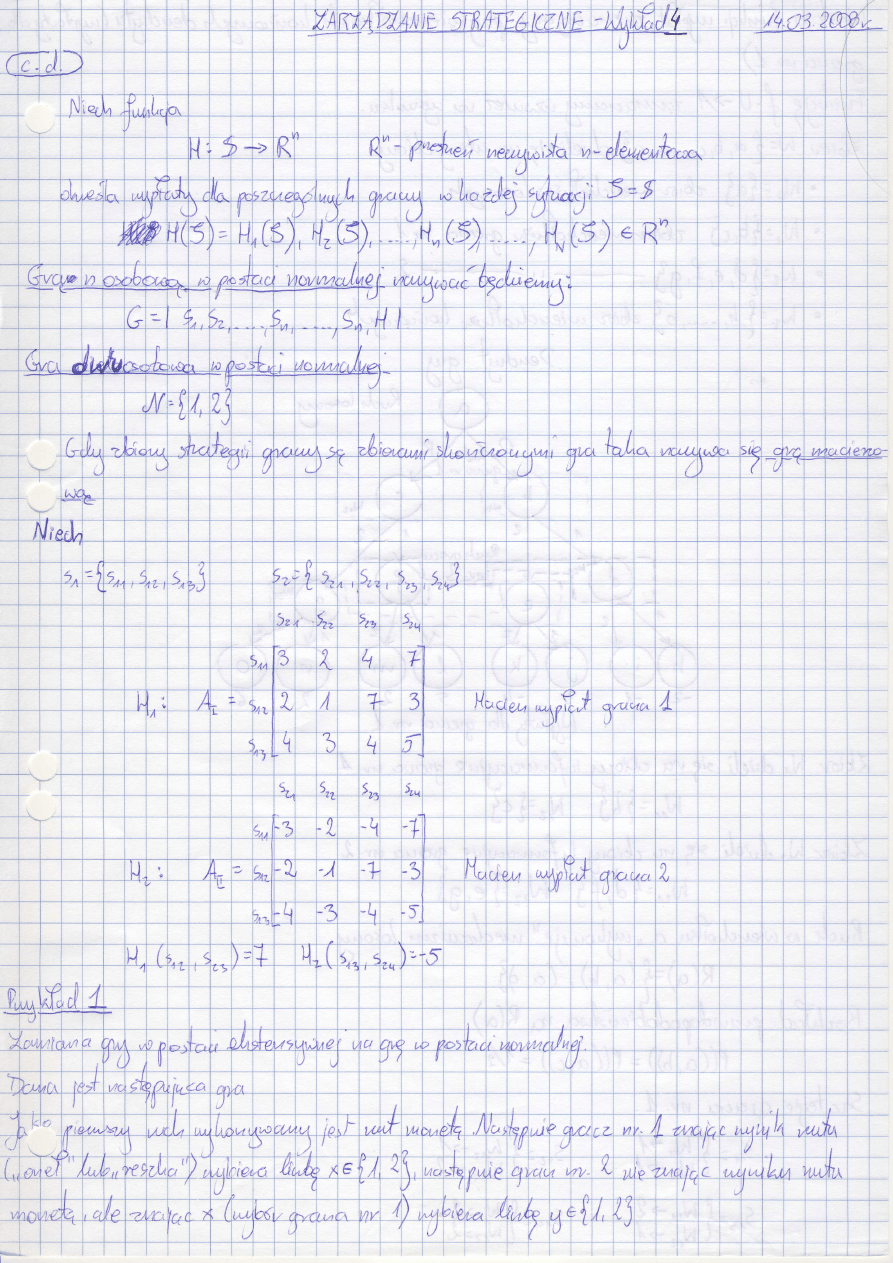 ZARZĄDZANIE STRATEGICZNE - Wykład 4 14.03.2008r.
c.d.
Niech funkcja
H: S → Rⁿ Rⁿ - przestrzeń rzeczywista n-elementowa
określa wypłaty dla poszczególnych graczy w każdej sytuacji S=S
H(S) = H₁(S), H₂(S), ....., Hₙ(S) ......, H_N(S) ∈ Rⁿ
Grą n osobową w postaci normalnej nazywać będziemy:
G = | S₁, S₂, ....., Sₙ, ....., Sₙ, H |
Gra dwuosobowa w postaci normalnej.
N = {1, 2}
Gdy zbiory strategii graczy są zbiorami skończonymi gra taka nazywa się grą macierzo-
wą
Niech
s₁ = {s₁₁, s₁₂, s₁₃} s₂ = {s₂₁, s₂₂, s₂₃, s₂₄}
s₂₁ s₂₂ s₂₃ s₂₄
s₁₁ 3 2 4 7
H₁: A_I = s₁₂ 2 1 7 3 Macierz wypłat gracza 1
s₁₃ 4 3 4 5
s₂₁ s₂₂ s₂₃ s₂₄
s₁₁ -3 -2 -4 -7
H₂: A_II = s₁₂ -2 -1 -7 -3 Macierz wypłat gracza 2
s₁₃ -4 -3 -4 -5
H₁(s₁₂, s₂₃) = 7 H₂(s₁₃, s₂₄) = -5
Przykład 1
Zamiana gry w postaci ekstensywnej na grę w postaci normalnej.
Dana jest następująca gra
Jako pierwszy ruch wykonywany jest rzut monetą. Następnie gracz nr. 1 znając wynik rzutu
(„orzeł" lub „reszka") wybiera liczbę x∈{1, 2}, następnie gracz nr. 2 nie znając wyniku rzutu
monetą, ale znając x (wybór gracza nr 1) wybiera liczbę y∈{1, 2}